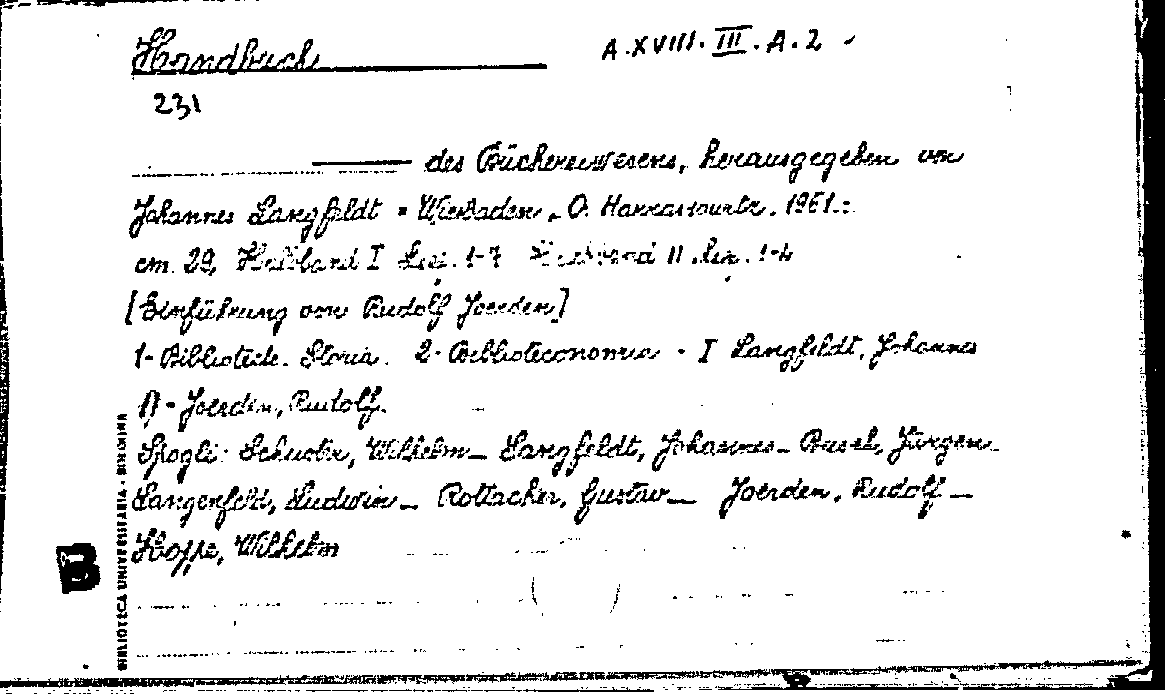 Handbuch
A.XVIII.III.A.2
231
des Büchereiwesens, herausgegeben von
Johannes Langfeldt - Wiesbaden, O. Harrassowitz. 1961.-
cm. 29, Halbband I Lief. 1-7 Halbband II Lief. 1-4
[Einführung von Rudolf Joerden]
1- Biblioteche. Storia. 2- Biblioteconomia - I Langfeldt, Johannes
II - Joerden, Rudolf.
Spogli: Schuster, Wilhelm - Langfeldt, Johannes - Busel, Jürgen -
Langenfeld, Ludwin - Rottacher, Gustav - Joerden, Rudolf -
Hoppe, Wilhelm
BIBLIOTECA UNIVERSITARIA - BOLOGNA
B